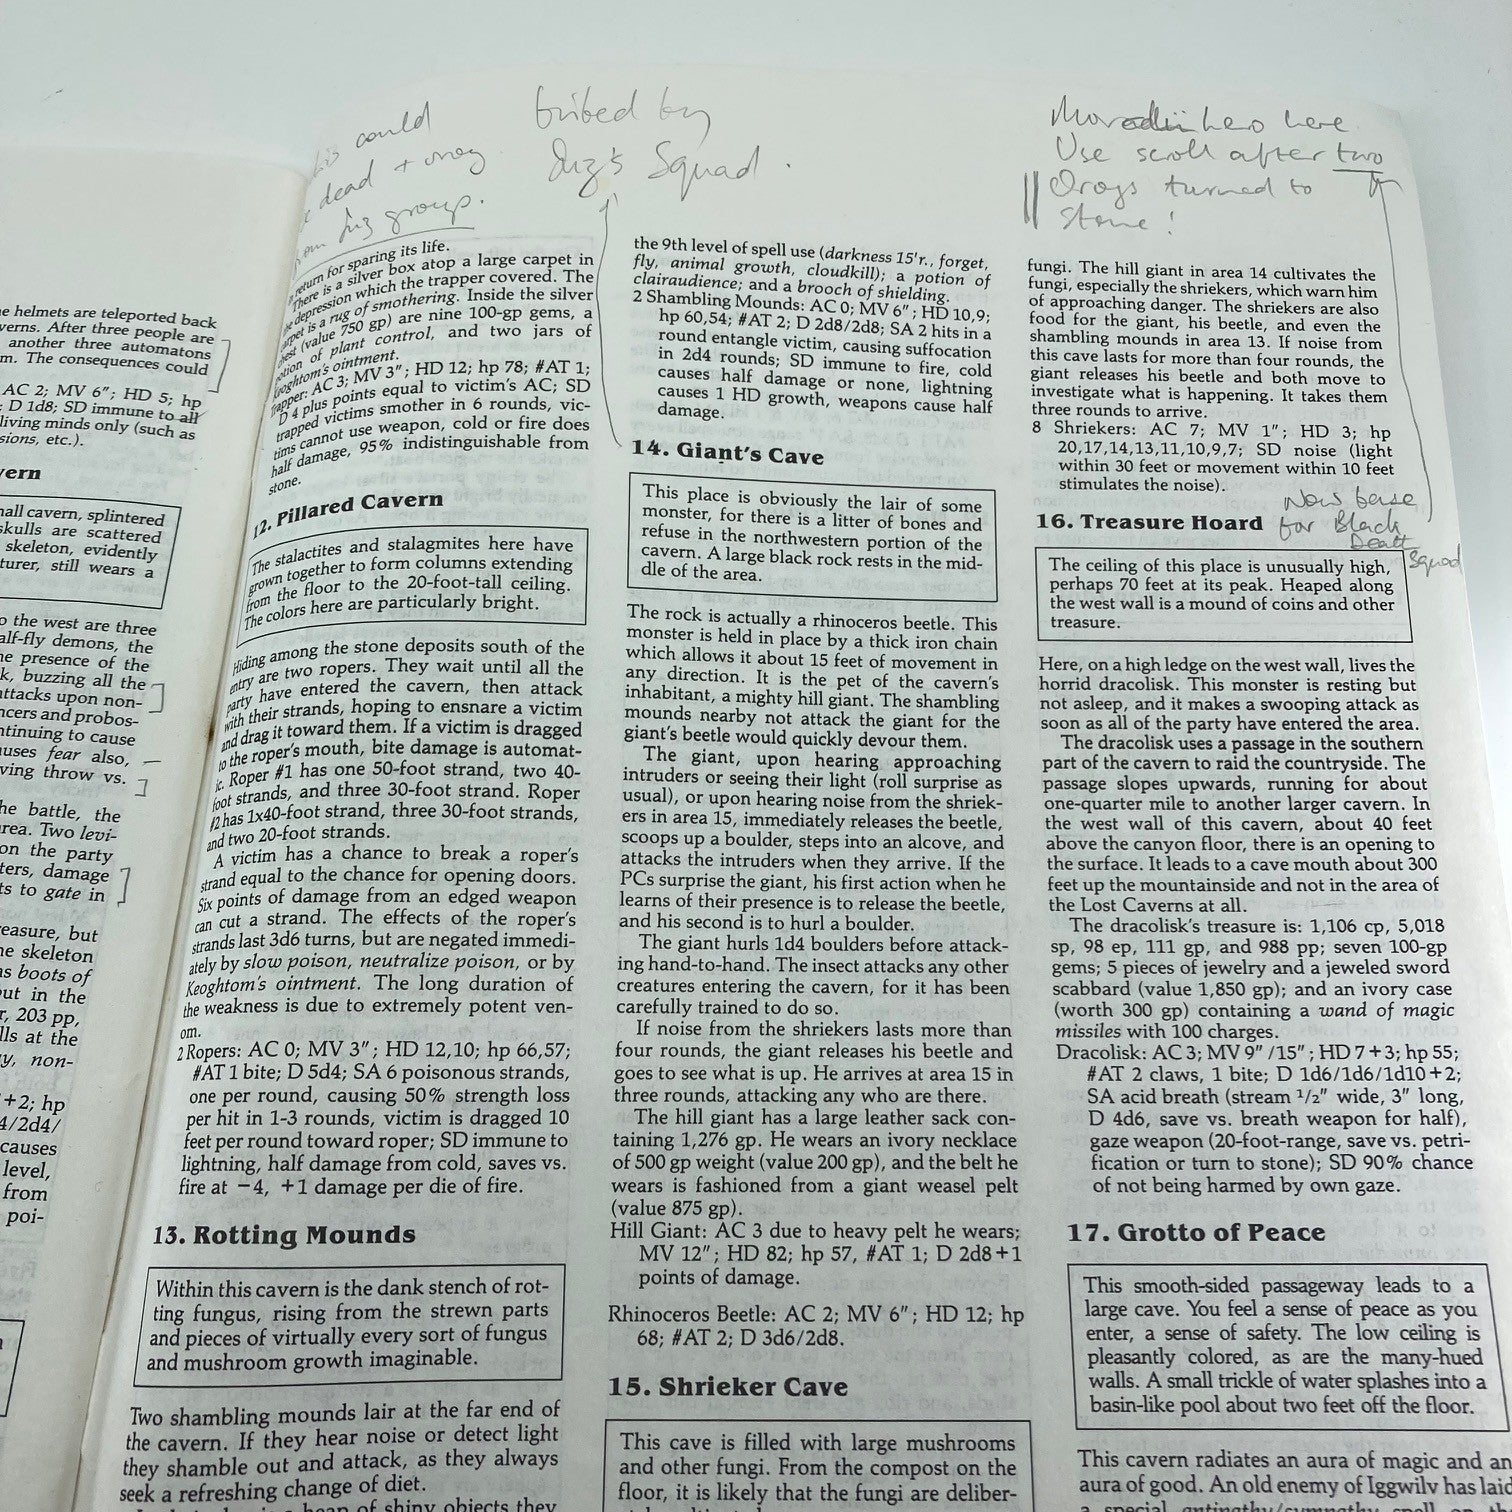 e helmets are teleported back
verns. After three people are
another three automatons
m. The consequences could
AC 2; MV 6"; HD 5; hp
; D 1d8; SD immune to all
living minds only (such as
sions, etc.).
vern
nall cavern, splintered
skulls are scattered
skeleton, evidently
turer, still wears a
o the west are three
alf-fly demons, the
he presence of the
k, buzzing all the
attacks upon non-
ncers and probos-
ntinuing to cause
uses fear also,
ving throw vs.
he battle, the
rea. Two levi-
on the party
ters, damage
ts to gate in
reasure, but
he skeleton
as boots of
out in the
r, 203 pp,
lls at the
y, non-
+2; hp
4/2d4/
causes
level,
from
poi-
his could
dead + may
from Juz group.
return for sparing its life.
There is a silver box atop a large carpet in
the depression which the trapper covered. The
carpet is a rug of smothering. Inside the silver
chest (value 750 gp) are nine 100-gp gems, a
potion of plant control, and two jars of
Keoghtom's ointment.
Trapper: AC 3; MV 3"; HD 12; hp 78; #AT 1;
D 4 plus points equal to victim's AC; SD
trapped victims smother in 6 rounds, vic-
tims cannot use weapon, cold or fire does
half damage, 95% indistinguishable from
stone.
12. Pillared Cavern
The stalactites and stalagmites here have
grown together to form columns extending
from the floor to the 20-foot-tall ceiling.
The colors here are particularly bright.
Hiding among the stone deposits south of the
entry are two ropers. They wait until all the
party have entered the cavern, then attack
with their strands, hoping to ensnare a victim
and drag it toward them. If a victim is dragged
to the roper's mouth, bite damage is automat-
ic. Roper #1 has one 50-foot strand, two 40-
foot strands, and three 30-foot strand. Roper
#2 has 1x40-foot strand, three 30-foot strands,
and two 20-foot strands.
A victim has a chance to break a roper's
strand equal to the chance for opening doors.
Six points of damage from an edged weapon
can cut a strand. The effects of the roper's
strands last 3d6 turns, but are negated immedi-
ately by slow poison, neutralize poison, or by
Keoghtom's ointment. The long duration of
the weakness is due to extremely potent ven-
om.
2 Ropers: AC 0; MV 3"; HD 12,10; hp 66,57;
#AT 1 bite; D 5d4; SA 6 poisonous strands,
one per round, causing 50% strength loss
per hit in 1-3 rounds, victim is dragged 10
feet per round toward roper; SD immune to
lightning, half damage from cold, saves vs.
fire at −4, +1 damage per die of fire.
13. Rotting Mounds
Within this cavern is the dank stench of rot-
ting fungus, rising from the strewn parts
and pieces of virtually every sort of fungus
and mushroom growth imaginable.
Two shambling mounds lair at the far end of
the cavern. If they hear noise or detect light
they shamble out and attack, as they always
seek a refreshing change of diet.
heap of shiny objects they
bribed by
Juz's Squad.
the 9th level of spell use (darkness 15'r., forget,
fly, animal growth, cloudkill); a potion of
clairaudience; and a brooch of shielding.
2 Shambling Mounds: AC 0; MV 6"; HD 10,9;
hp 60,54; #AT 2; D 2d8/2d8; SA 2 hits in a
round entangle victim, causing suffocation
in 2d4 rounds; SD immune to fire, cold
causes half damage or none, lightning
causes 1 HD growth, weapons cause half
damage.
14. Giant's Cave
This place is obviously the lair of some
monster, for there is a litter of bones and
refuse in the northwestern portion of the
cavern. A large black rock rests in the mid-
dle of the area.
The rock is actually a rhinoceros beetle. This
monster is held in place by a thick iron chain
which allows it about 15 feet of movement in
any direction. It is the pet of the cavern's
inhabitant, a mighty hill giant. The shambling
mounds nearby not attack the giant for the
giant's beetle would quickly devour them.
The giant, upon hearing approaching
intruders or seeing their light (roll surprise as
usual), or upon hearing noise from the shriek-
ers in area 15, immediately releases the beetle,
scoops up a boulder, steps into an alcove, and
attacks the intruders when they arrive. If the
PCs surprise the giant, his first action when he
learns of their presence is to release the beetle,
and his second is to hurl a boulder.
The giant hurls 1d4 boulders before attack-
ing hand-to-hand. The insect attacks any other
creatures entering the cavern, for it has been
carefully trained to do so.
If noise from the shriekers lasts more than
four rounds, the giant releases his beetle and
goes to see what is up. He arrives at area 15 in
three rounds, attacking any who are there.
The hill giant has a large leather sack con-
taining 1,276 gp. He wears an ivory necklace
of 500 gp weight (value 200 gp), and the belt he
wears is fashioned from a giant weasel pelt
(value 875 gp).
Hill Giant: AC 3 due to heavy pelt he wears;
MV 12"; HD 82; hp 57, #AT 1; D 2d8+1
points of damage.
Rhinoceros Beetle: AC 2; MV 6"; HD 12; hp
68; #AT 2; D 3d6/2d8.
15. Shrieker Cave
This cave is filled with large mushrooms
and other fungi. From the compost on the
floor, it is likely that the fungi are deliber-
hero here
Use scroll after two
Drays turned to
stone!
fungi. The hill giant in area 14 cultivates the
fungi, especially the shriekers, which warn him
of approaching danger. The shriekers are also
food for the giant, his beetle, and even the
shambling mounds in area 13. If noise from
this cave lasts for more than four rounds, the
giant releases his beetle and both move to
investigate what is happening. It takes them
three rounds to arrive.
8 Shriekers: AC 7; MV 1"; HD 3; hp
20,17,14,13,11,10,9,7; SD noise (light
within 30 feet or movement within 10 feet
stimulates the noise).
16. Treasure Hoard
Now base
for Black
Death
Squad
The ceiling of this place is unusually high,
perhaps 70 feet at its peak. Heaped along
the west wall is a mound of coins and other
treasure.
Here, on a high ledge on the west wall, lives the
horrid dracolisk. This monster is resting but
not asleep, and it makes a swooping attack as
soon as all of the party have entered the area.
The dracolisk uses a passage in the southern
part of the cavern to raid the countryside. The
passage slopes upwards, running for about
one-quarter mile to another larger cavern. In
the west wall of this cavern, about 40 feet
above the canyon floor, there is an opening to
the surface. It leads to a cave mouth about 300
feet up the mountainside and not in the area of
the Lost Caverns at all.
The dracolisk's treasure is: 1,106 cp, 5,018
sp, 98 ep, 111 gp, and 988 pp; seven 100-gp
gems; 5 pieces of jewelry and a jeweled sword
scabbard (value 1,850 gp); and an ivory case
(worth 300 gp) containing a wand of magic
missiles with 100 charges.
Dracolisk: AC 3; MV 9"/15"; HD 7+3; hp 55;
#AT 2 claws, 1 bite; D 1d6/1d6/1d10+2;
SA acid breath (stream 1/2" wide, 3" long,
D 4d6, save vs. breath weapon for half),
gaze weapon (20-foot-range, save vs. petri-
fication or turn to stone); SD 90% chance
of not being harmed by own gaze.
17. Grotto of Peace
This smooth-sided passageway leads to a
large cave. You feel a sense of peace as you
enter, a sense of safety. The low ceiling is
pleasantly colored, as are the many-hued
walls. A small trickle of water splashes into a
basin-like pool about two feet off the floor.
This cavern radiates an aura of magic and an
aura of good. An old enemy of Iggwilv has laid
a special antipathy/sympathy